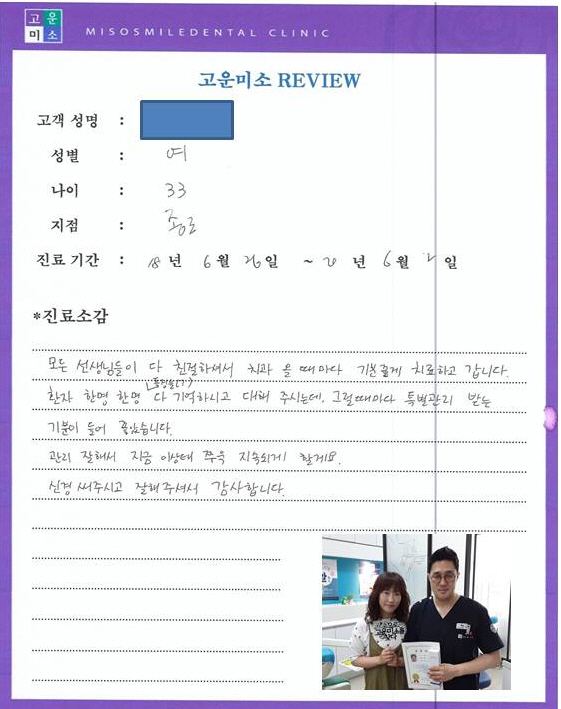 고운
미소
MISOSMILEDENTAL CLINIC
고운미소 REVIEW
고객 성명 :
성별 : 여
나이 : 33
지점 : 종로
진료 기간 : 18 년 6 월 26 일 ~ 20 년 6 월 2 일
*진료소감
모든 선생님들이 다 친절하셔서 치과 올 때마다 기분좋게 치료하고 갑니다.
환자 한명 한명 다 기억하시고 대해 주시는데, 그럴때마다 특별관리 받는
기분이 들어 좋았습니다.
관리 잘해서 지금 이상태 주욱 지속되게 할게요.
신경 써주시고 잘해주셔서 감사합니다.
고운미소를